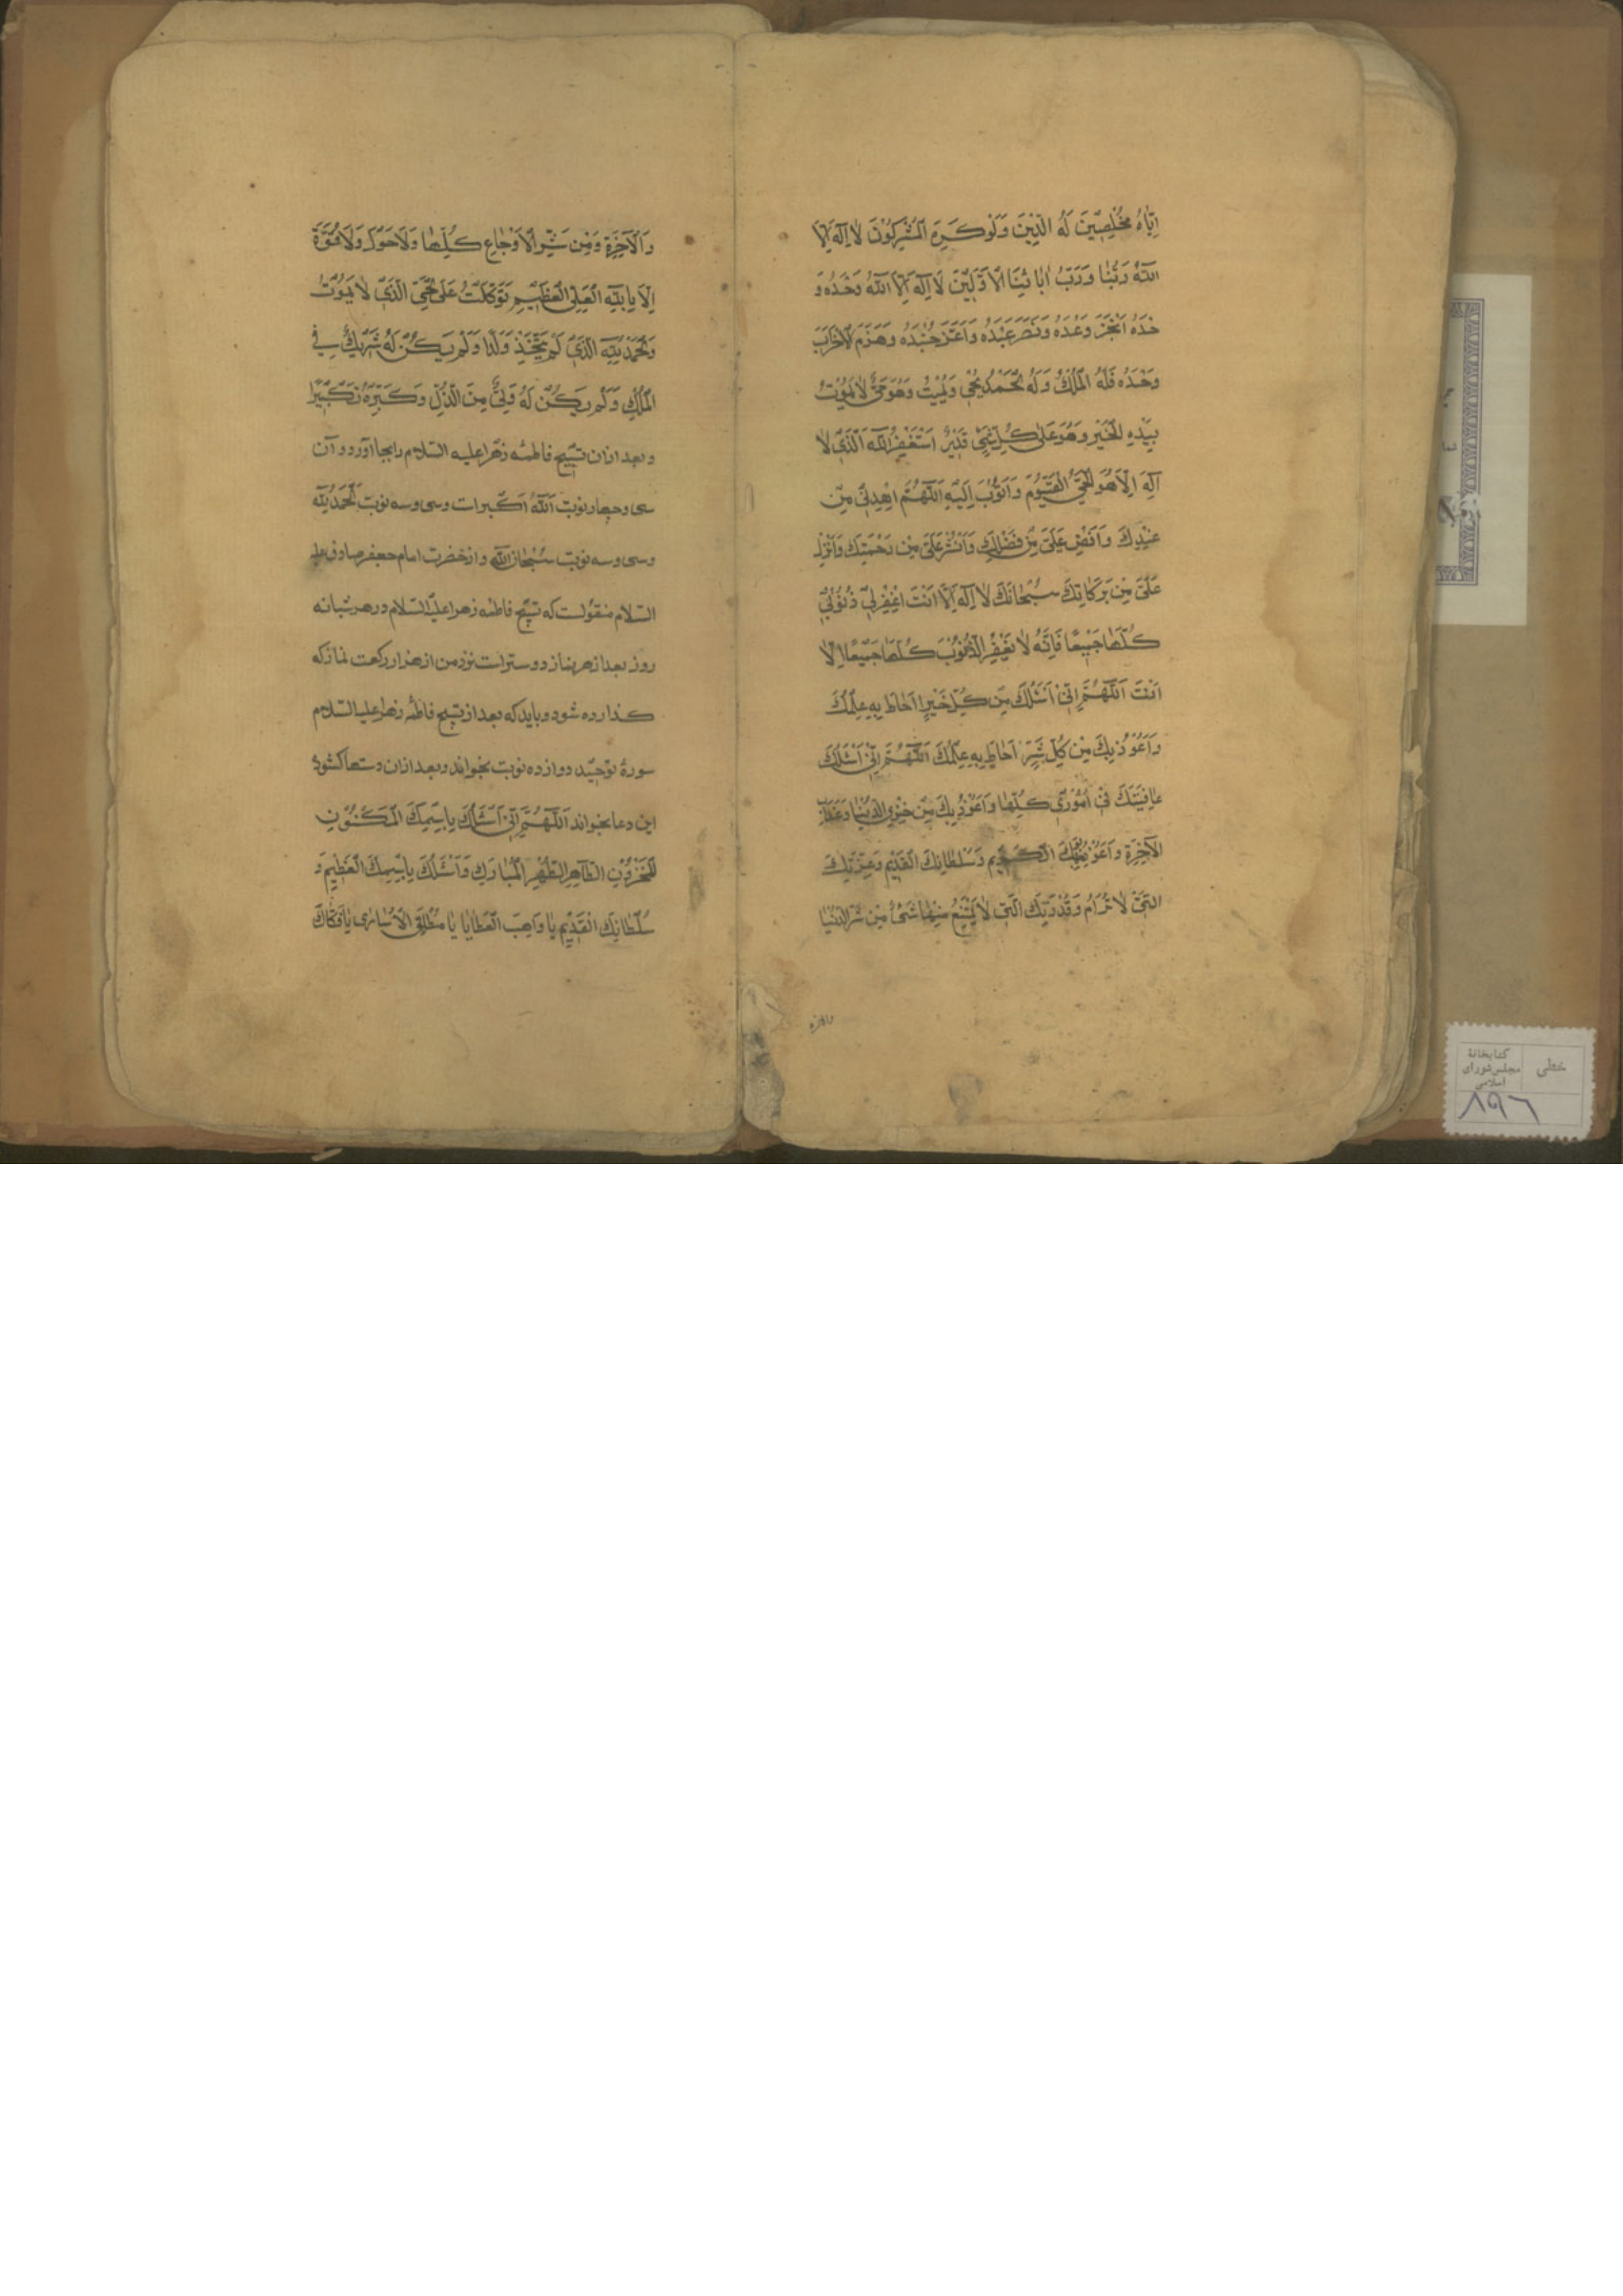 اِيّاهُ مُخْلِصِينَ لَهُ الدِّينَ وَلَوْ كَرِهَ الْمُشْرِكُونَ لا اِلهَ اِلاَّ
اللهُ رَبُّنا وَرَبُّ ابائِنَا الْاَوَّلِينَ لا اِلهَ اِلاَّ اللهُ وَحْدَهُ وَ
حْدَهُ اَنْجَزَ وَعْدَهُ وَنَصَرَ عَبْدَهُ وَاَعَزَّ جُنْدَهُ وَهَزَمَ الْاَحْزابَ
وَحْدَهُ فَلَهُ الْمُلْكُ وَلَهُ الْحَمْدُ يُحْيِي وَيُمِيتُ وَهُوَ حَيٌّ لا يَمُوتُ
بِيَدِهِ الْخَيْرُ وَهُوَ عَلى كُلِّ شَيْءٍ قَدِيرٌ اَسْتَغْفِرُ اللهَ الَّذِي لا
اِلهَ اِلاَّ هُوَ الْحَيُّ الْقَيُّومُ وَاَتُوبُ اِلَيْهِ اَللّهُمَّ اهْدِنِي مِنْ
عِنْدِكَ وَاَفِضْ عَلَيَّ مِنْ فَضْلِكَ وَانْشُرْ عَلَيَّ مِنْ رَحْمَتِكَ وَاَنْزِلْ
عَلَيَّ مِنْ بَرَكاتِكَ سُبْحانَكَ لا اِلهَ اِلاَّ اَنْتَ اغْفِرْ لِي ذُنُوبِي
كُلَّها جَمِيعًا فَاِنَّهُ لا يَغْفِرُ الذُّنُوبَ كُلَّها جَمِيعًا اِلاّ
اَنْتَ اَللّهُمَّ اِنِّي اَسْئَلُكَ مِنْ كُلِّ خَيْرٍ اَحاطَ بِهِ عِلْمُكَ
وَاَعُوذُ بِكَ مِنْ كُلِّ شَرٍّ اَحاطَ بِهِ عِلْمُكَ اَللّهُمَّ اِنِّي اَسْئَلُكَ
عافِيَتَكَ فِي اُمُورِي كُلِّها وَاَعُوذُ بِكَ مِنْ خِزْيِ الدُّنْيا وَعَذابِ
الْاخِرَةِ وَاَعُوذُ بِوَجْهِكَ الْكَرِيمِ وَسُلْطانِكَ الْقَدِيمِ وَعِزَّتِكَ
الَّتِي لا تُرامُ وَقُدْرَتِكَ الَّتِي لا يَمْتَنِعُ مِنْها شَيْءٌ مِنْ شَرِّ الدُّنْيا
والاخرة
وَالْآخِرَةِ وَمِنْ شَرِّ الْاَوْجاعِ كُلِّها وَلا حَوْلَ وَلا قُوَّةَ
اِلاّ بِاللهِ الْعَلِيِّ الْعَظِيمِ تَوَكَّلْتُ عَلَى الْحَيِّ الَّذِي لا يَمُوتُ
وَالْحَمْدُ لِلّهِ الَّذِي لَمْ يَتَّخِذْ وَلَدًا وَلَمْ يَكُنْ لَهُ شَرِيكٌ فِي
الْمُلْكِ وَلَمْ يَكُنْ لَهُ وَلِيٌّ مِنَ الذُّلِّ وَكَبِّرْهُ تَكْبِيرًا
و بعد ازان تسبيح فاطمه زهرا عليه السّلام را بجا آورد و آن
سى و چهار نوبت اَللهُ اَكْبر است و سى و سه نوبت اَلْحَمْدُ لِلّه
و سى و سه نوبت سُبْحانَ اللهِ و از حضرت امام جعفر صادق عليه
السّلام منقولست كه تسبيح فاطمه زهرا عليها السّلام در هر شبانه
روز بعد از هر نماز دوستر است نزد من از هزار ركعت نماز كه
كذارده شود و بايد كه بعد از تسبيح فاطمه زهرا عليها السّلام
سورهٔ توحيد دوازده نوبت بخواند و بعد ازان دستها كشوده
اين دعا بخواند اَللّهُمَّ اِنِّي اَسْئَلُكَ بِاسْمِكَ الْمَكْنُونِ
الْمَخْزُونِ الطّاهِرِ الطُّهْرِ الْمُبارَكِ وَاَسْئَلُكَ بِاسْمِكَ الْعَظِيمِ وَ
سُلْطانِكَ الْقَدِيمِ يا واهِبَ الْعَطايا يا مُطْلِقَ الْاُسارى يا فَكّاكَ
خطی
کتابخانهٔ
مجلس شورای
اسلامی
۸۹۶